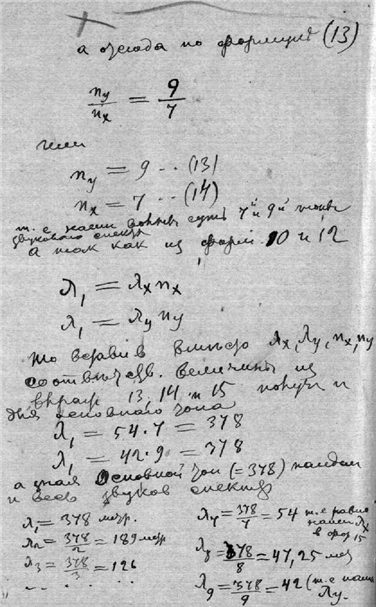 а отсюда по формуле (13)
ny/nx = 9/7
или
ny = 9 -- (13)
nx = 7 -- (14)
т. е. наши волны суть 7й и 9й
звукового спектра
А так как из форм. 10 и 12
λ₁ = λx nx
λ₁ = λy ny
То вставив вместо λx, λy, nx, ny
соответств. величины из
13, 14 и 15
для основного тона
λ₁ = 54·7 = 378
λ₁ = 42·9 = 378
а зная основной тон (= 378) найдем
и весь звуков спектр
λ₁ = 378 метр.
λ₂ = 378/2 = 189 метр
λ₃ = 378/3 = 126
λ₇ = 378/7 = 54 т. е. равно
нашему λx
в фор 15
λ₈ = 378/8 = 47,25 мет
λ₉ = 378/9 = 42 (т. е. наше
λy.